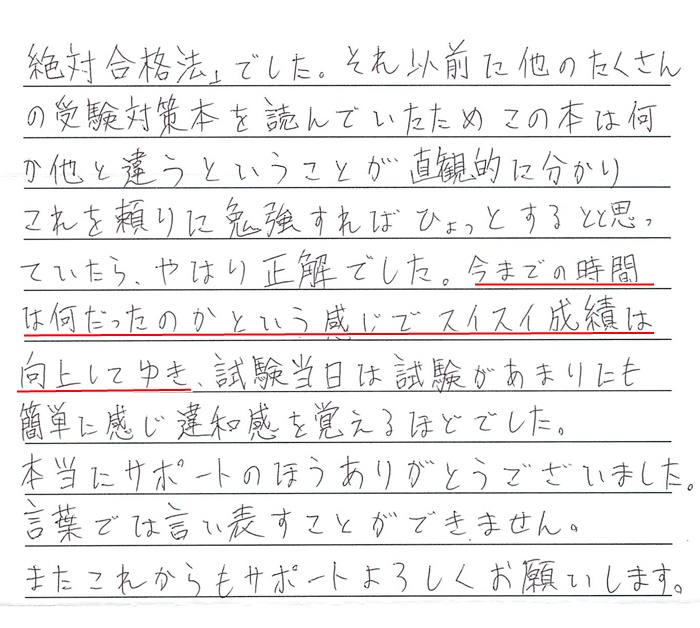 絶対合格法」でした。それ以前に他のたくさん
の受験対策本を読んでいたためこの本は何
か他と違うということが直観的に分かり
これを頼りに勉強すればひょっとするとと思っ
ていたら、やはり正解でした。今までの時間
は何だったのかという感じでスイスイ成績は
向上してゆき、試験当日は試験があまりにも
簡単に感じ違和感を覚えるほどでした。
本当にサポートのほうありがとうございました。
言葉では言い表すことができません。
またこれからもサポートよろしくお願いします。